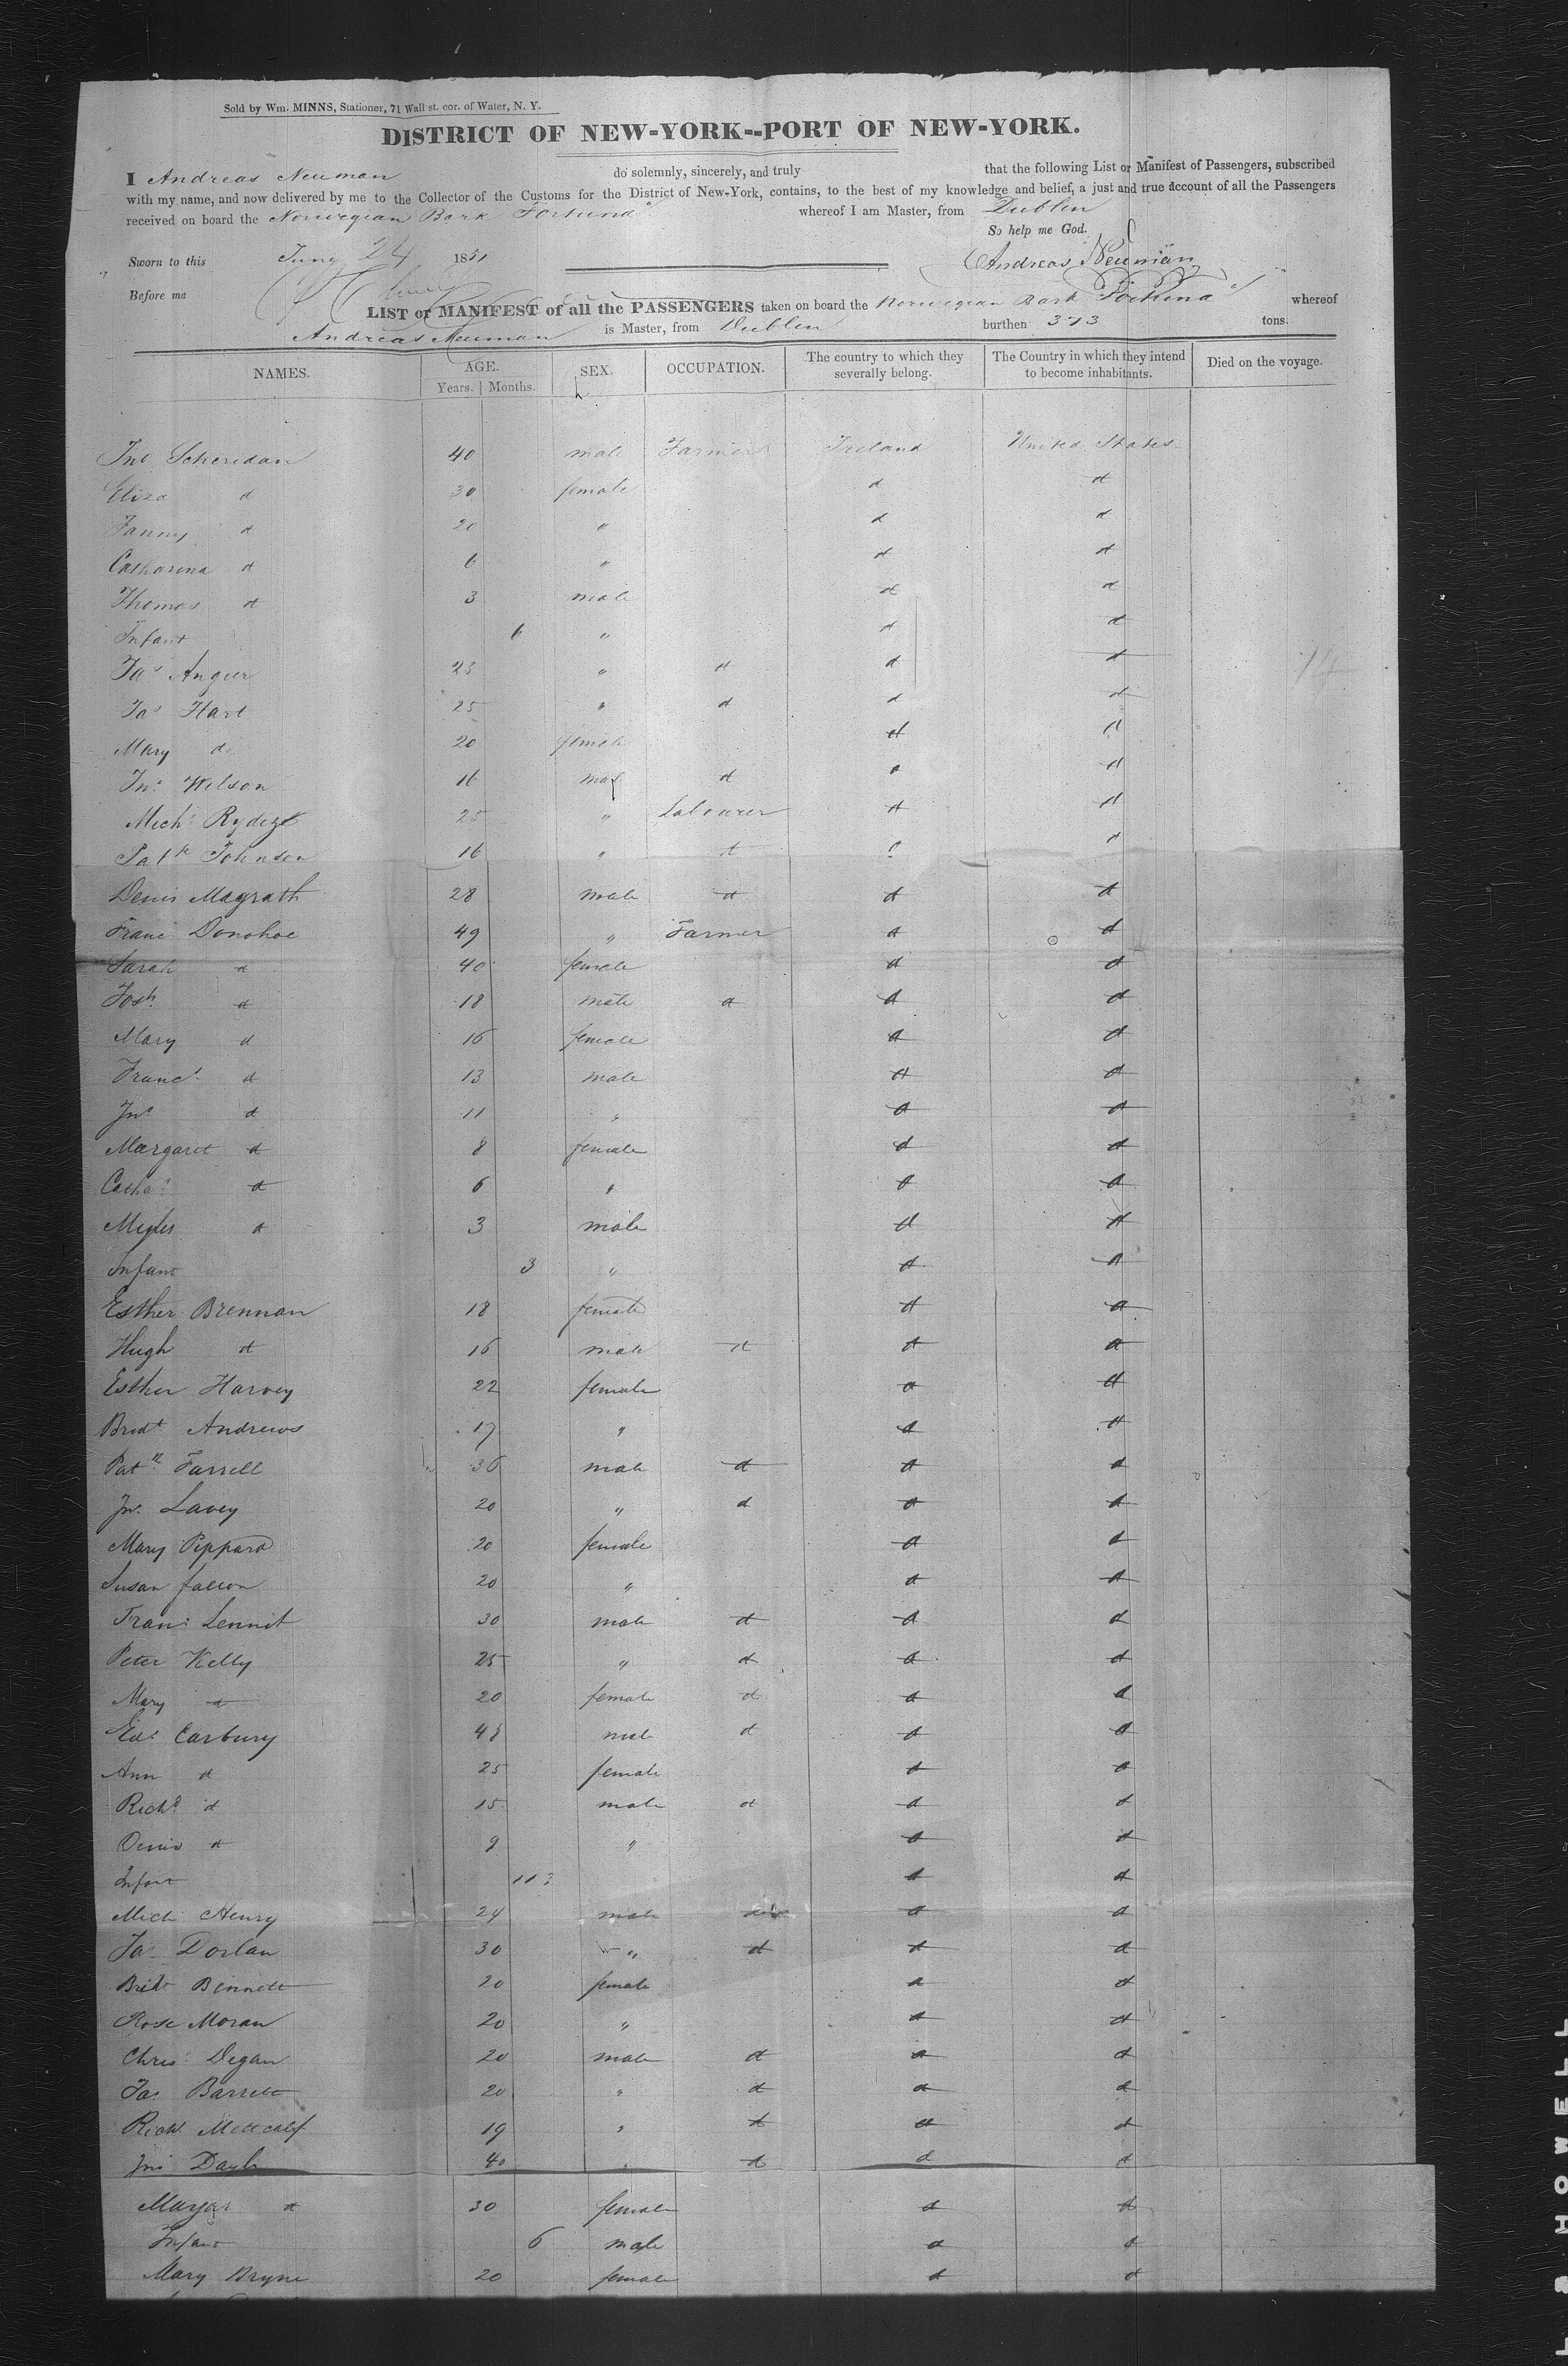 Sold by Wm. MINNS, Stationer, 71 Wall st. cor. of Water, N. Y.
DISTRICT OF NEW-YORK--PORT OF NEW-YORK.
I Andreas Neuman do solemnly, sincerely, and truly that the following List or Manifest of Passengers, subscribed
with my name, and now delivered by me to the Collector of the Customs for the District of New-York, contains, to the best of my knowledge and belief, a just and true account of all the Passengers
received on board the Norwegian Bark Fortuna whereof I am Master, from Dublin
So help me God.
Sworn to this June 24 1851 Andreas Neuman
Before me
LIST or MANIFEST of all the PASSENGERS taken on board the Norwegian Bark Fortuna whereof
Andreas Neuman is Master, from Dublin burthen 373 tons.
NAMES. AGE. Years. Months. SEX. OCCUPATION. The country to which they severally belong. The Country in which they intend to become inhabitants. Died on the voyage.
Jno Scheridan 40 male Farmer Ireland United States
Eliza d 30 female d d
Fanny d 20 " d d
Catharina d 6 " d d
Thomas d 3 male d d
Infant 6 " d d
Jas Angier 23 " d d d
14
Jas Hart 25 " d d d
Mary do 20 female d d
Jno Wilson 16 mal d d d
Mich Labourer d d
Patk Johnson 16 " d d
Denis Magrath 28 male d d d
Franc Donohoe 49 " Farmer d d
Sarah d 40 female d d
Josh d 18 male d d d
Mary d 16 female d d
Franc d 13 male d d
Jno d 11 " d d
Margaret d 8 female d d
Catha d 6 " d d
Myles d 3 male d d
Infant 3 " d d
Esther Brennan 18 female d d
Hugh d 16 male d d d
Esther Harvey 22 female d d
Bridt Andrews 17 " d d
Patk Farrell 36 male d d d
Jno Lavey 20 " d d d
Mary Peppard 20 female d d
Susan 20 " d d
Fran Lennit 30 male d d d
Peter Kelly 25 " d d d
Mary d 20 female d d d
Ed Carbury 48 male d d d
Ann d 25 female d d
Richd d 15 male d d d
Denis d 9 " d d
Infant 11 d d
Mich Henry 24 male d d
Ja Dorlan 30 " d d d
Bridt Bennett 20 female d d
Rose Moran 20 " d d
Chris Degan 20 male d d d
Jas Barrett 20 " d d d
Richd Mettcalf 19 " d d d
Jno Dayle 40 " d d d
Margar d 30 female d d
Infant 6 male d d
Mary Bryne 20 female d d